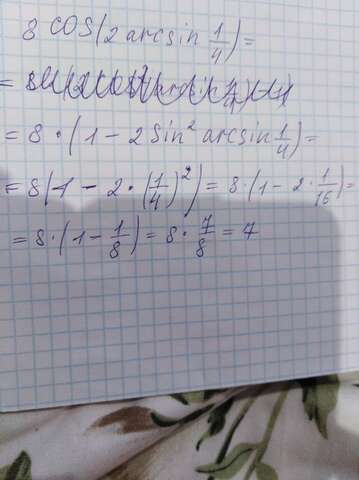 8 cos(2 arcsin 1/4) =
=
= 8 · (1 - 2 sin² arcsin 1/4) =
= 8(1 - 2 · (1/4)²) = 8 · (1 - 2 · 1/16) =
= 8 · (1 - 1/8) = 8 · 7/8 = 7